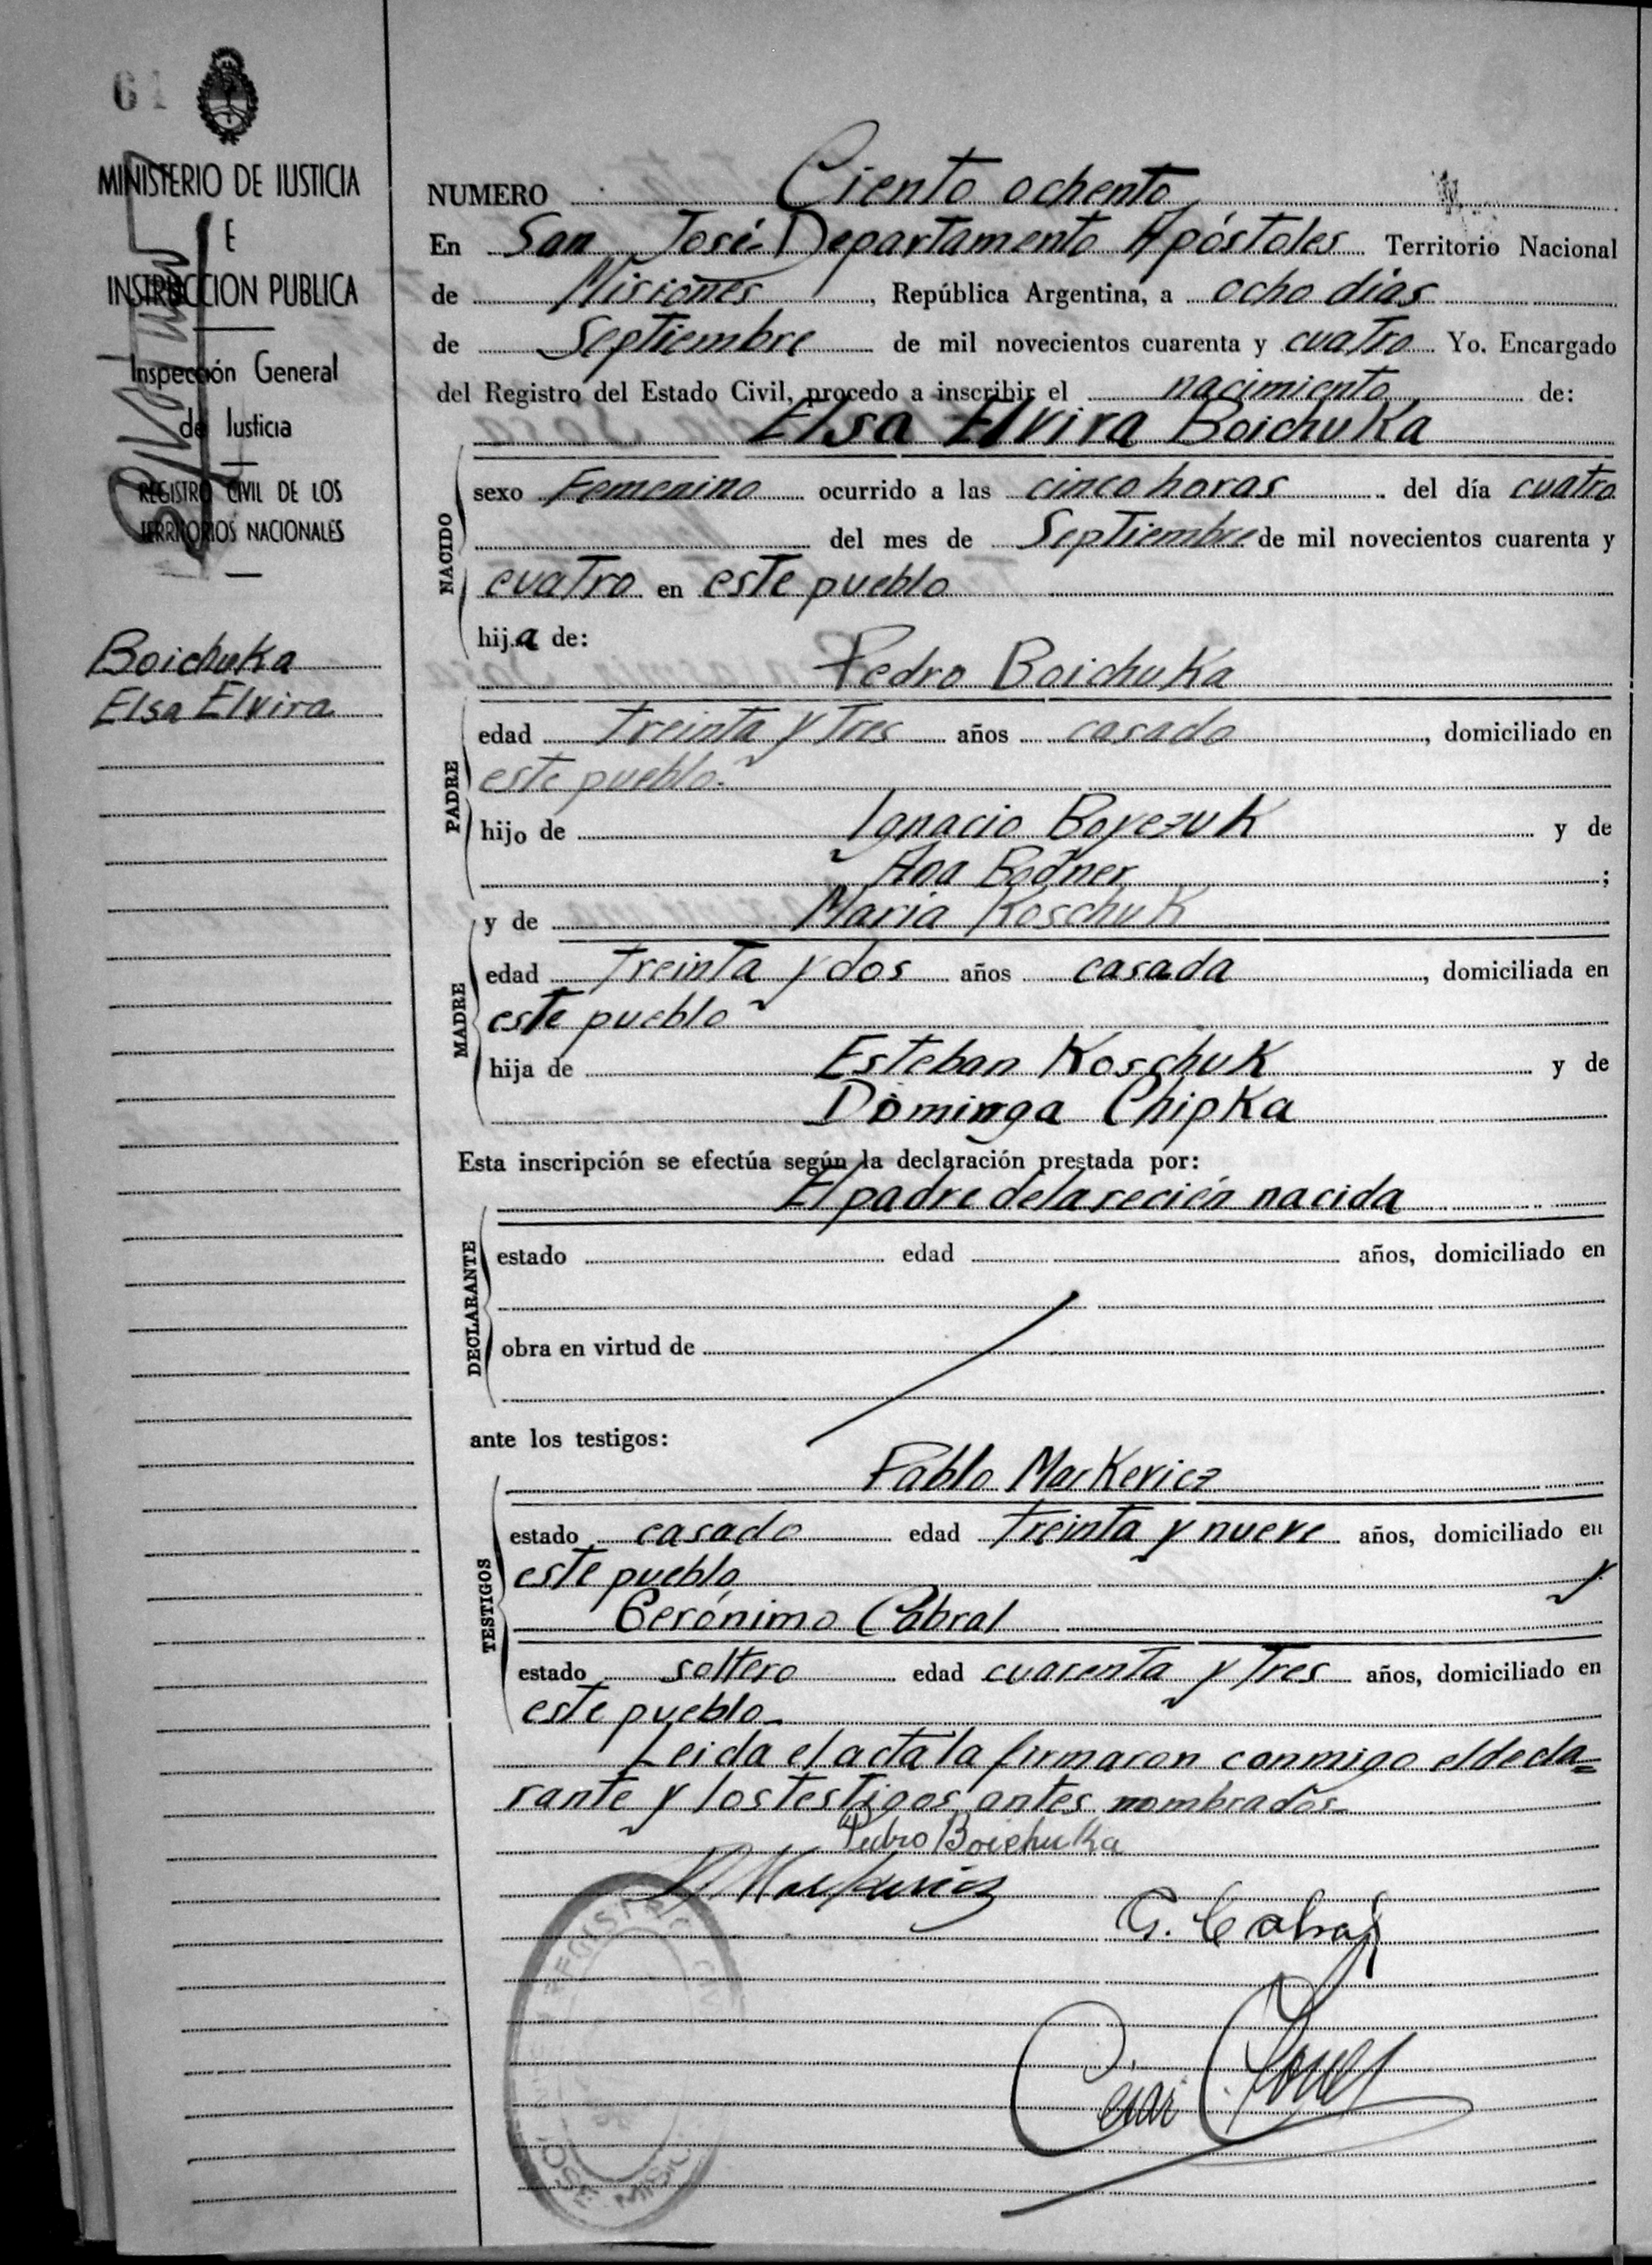 61
MINISTERIO DE JUSTICIA
E
INSTRUCCION PUBLICA
Inspección General
de Justicia
REGISTRO CIVIL DE LOS
TERRITORIOS NACIONALES
Boichuka
Elsa Elvira
NUMERO Ciento ochenta
En San José Departamento Apóstoles Territorio Nacional
de Misiones, República Argentina, a ocho días
de Septiembre de mil novecientos cuarenta y cuatro Yo. Encargado
del Registro del Estado Civil, procedo a inscribir el nacimiento de:
Elsa Elvira Boichuka
NACIDO
sexo Femenino ocurrido a las cinco horas del día cuatro
del mes de Septiembre de mil novecientos cuarenta y
cuatro en este pueblo
hija de:
Pedro Boichuka
PADRE
edad treinta y tres años casado, domiciliado en
este pueblo.
hijo de Ignacio Boyezuk y de
Ana Bodner;
y de María Koschuk
MADRE
edad treinta y dos años casada, domiciliada en
este pueblo
hija de Esteban Koschuk y de
Dominga Chipka
Esta inscripción se efectúa según la declaración prestada por:
El padre de la recién nacida
DECLARANTE
estado edad años, domiciliado en
obra en virtud de
ante los testigos:
Pablo Markevicz
TESTIGOS
estado casado edad treinta y nueve años, domiciliado en
este pueblo y
Gerónimo Cabral
estado soltero edad cuarenta y tres años, domiciliado en
este pueblo
Leida el acta la firmaron conmigo el decla=
rante y los testigos antes nombrados
Pedro Boichuka
P Markevicz
G. Cabral
REGISTRO CIVIL